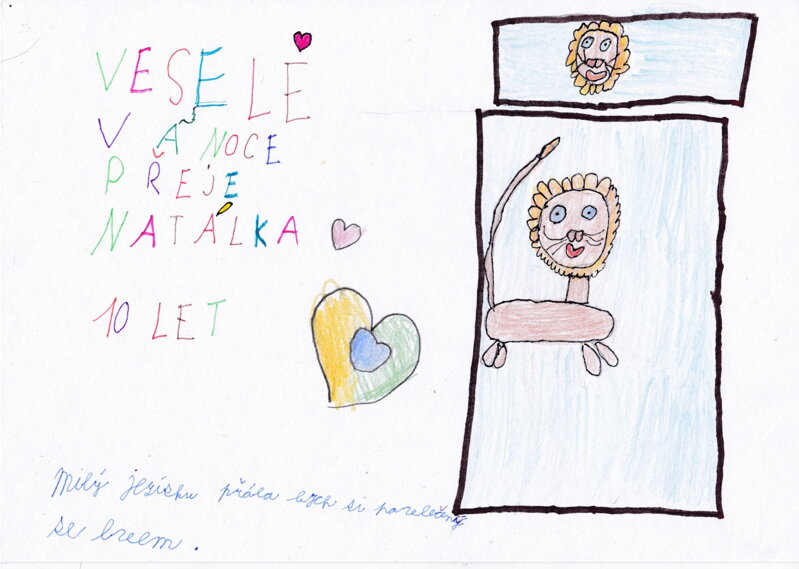 VESELÉ
VÁNOCE
PŘEJE
NATÁLKA
10 LET
Milý jezísku přála bych si
se lvem.